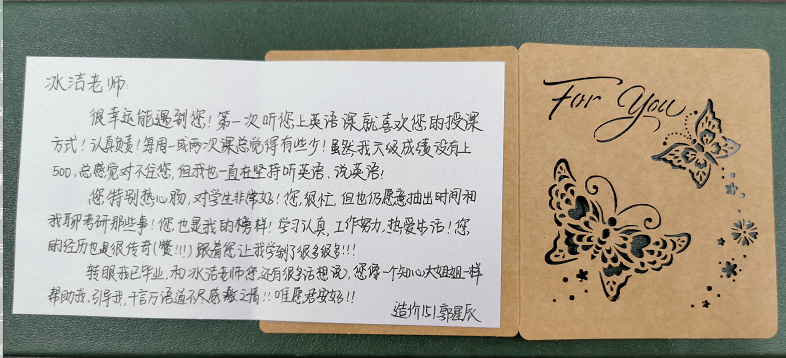 冰洁老师:
很幸运能遇到您!第一次听您上英语课就喜欢您的授课
方式!认真负责!每周一或两次课总觉得有些少!虽然我六级成绩没有上
500,总感觉对不住您,但我也一直在坚持听英语、说英语!
您特别热心肠,对学生非常好!您很忙,但也仍愿意抽出时间和
我聊考研那些事!您也是我的榜样!学习认真,工作努力,热爱生活!您
的经历也是很传奇(赞!!!)跟着您让我学到了很多很多!!!
转眼我已毕业,和冰洁老师您还有很多话想说,您像一个知心大姐姐一样
帮助我、引导我,千言万语道不尽感激之情!!唯愿君安好!!
造价151郭星辰
For You